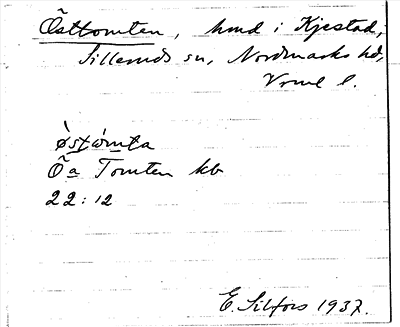 Östtomten, hmd i Kjestad,
Silleruds sn, Nordmarks hd,
Vrml l.
östomta
Öa Tomten kb
22:12
E. Silfors 1937.